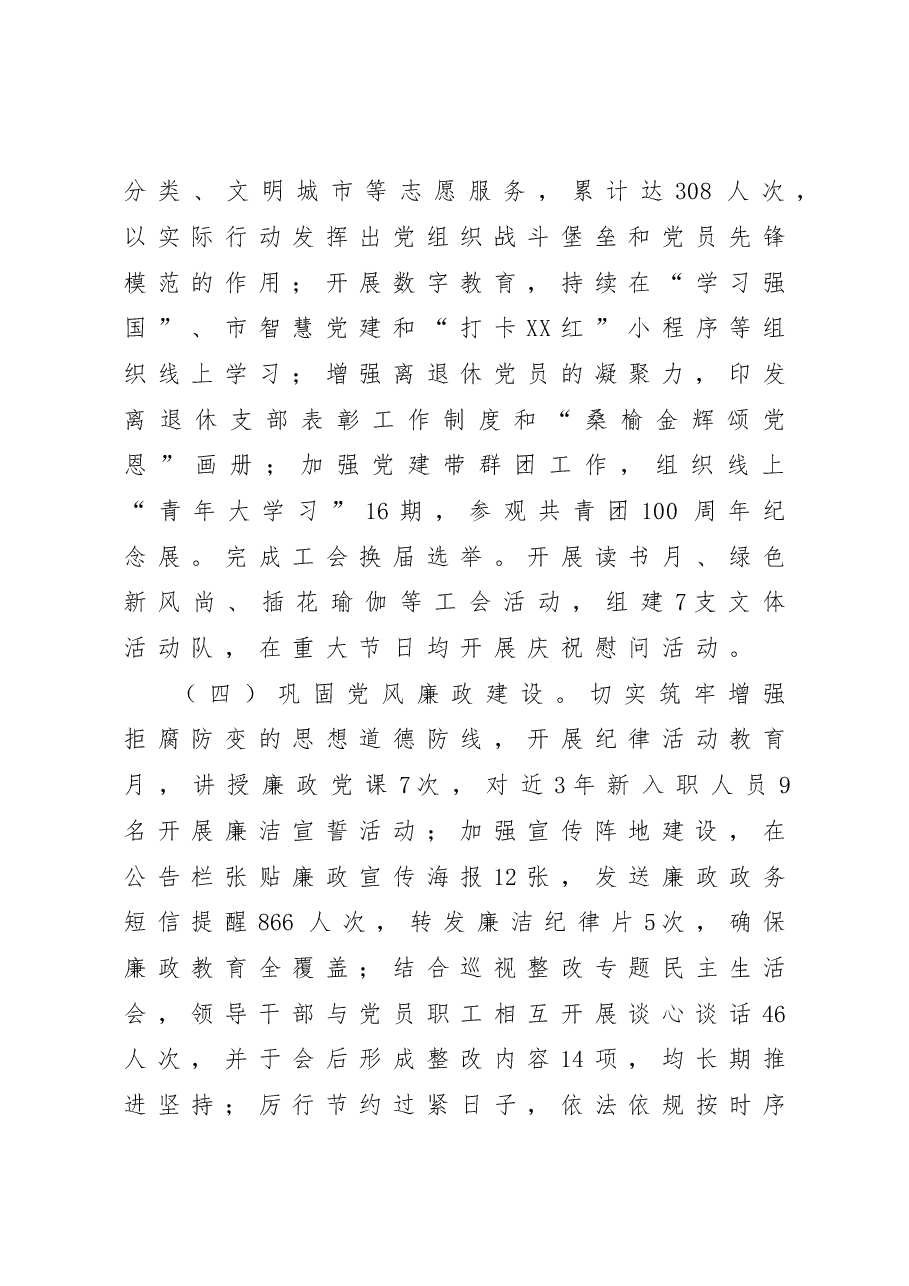 分类、文明城市等志愿服务，累计达308人次，
以实际行动发挥出党组织战斗堡垒和党员先锋
模范的作用；开展数字教育，持续在“学习强
国”、市智慧党建和“打卡XX红”小程序等组
织线上学习；增强离退休党员的凝聚力，印发
离退休支部表彰工作制度和“桑榆金辉颂党
恩”画册；加强党建带群团工作，组织线上
“青年大学习”16期，参观共青团100周年纪
念展。完成工会换届选举。开展读书月、绿色
新风尚、插花瑜伽等工会活动，组建7支文体
活动队，在重大节日均开展庆祝慰问活动。
（四）巩固党风廉政建设。切实筑牢增强
拒腐防变的思想道德防线，开展纪律活动教育
月，讲授廉政党课7次，对近3年新入职人员9
名开展廉洁宣誓活动；加强宣传阵地建设，在
公告栏张贴廉政宣传海报12张，发送廉政政务
短信提醒866人次，转发廉洁纪律片5次，确保
廉政教育全覆盖；结合巡视整改专题民主生活
会，领导干部与党员职工相互开展谈心谈话46
人次，并于会后形成整改内容14项，均长期推
进坚持；厉行节约过紧日子，依法依规按时序